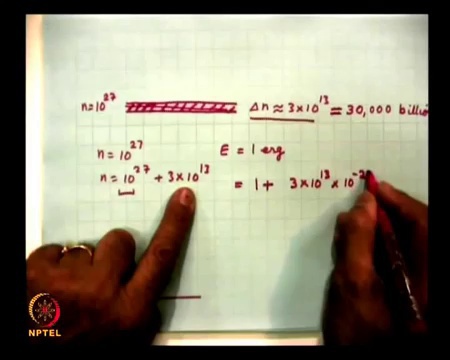 n=10²⁷ Δn ≈ 3×10¹³ = 30,000 billio
n = 10²⁷ E = 1 erg
n = 10²⁷ + 3×10¹³ = 1 + 3×10¹³ × 10⁻²
NPTEL